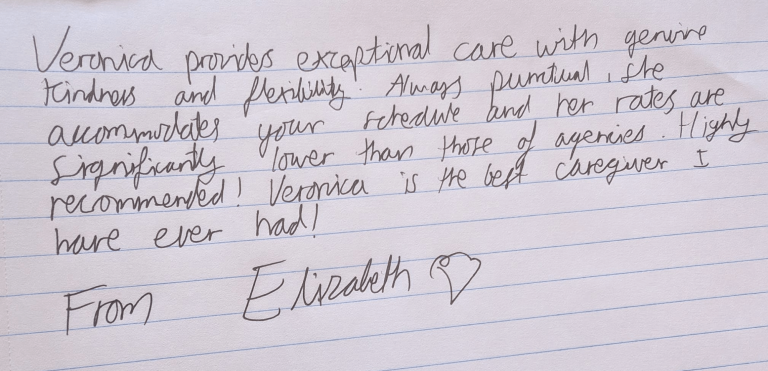 Veronica provides exceptional care with genuine
kindness and flexibility. Always punctual, she
accommodates your schedule and her rates are
significantly lower than those of agencies. Highly
recommended! Veronica is the best caregiver I
have ever had!
From Elizabeth ♡